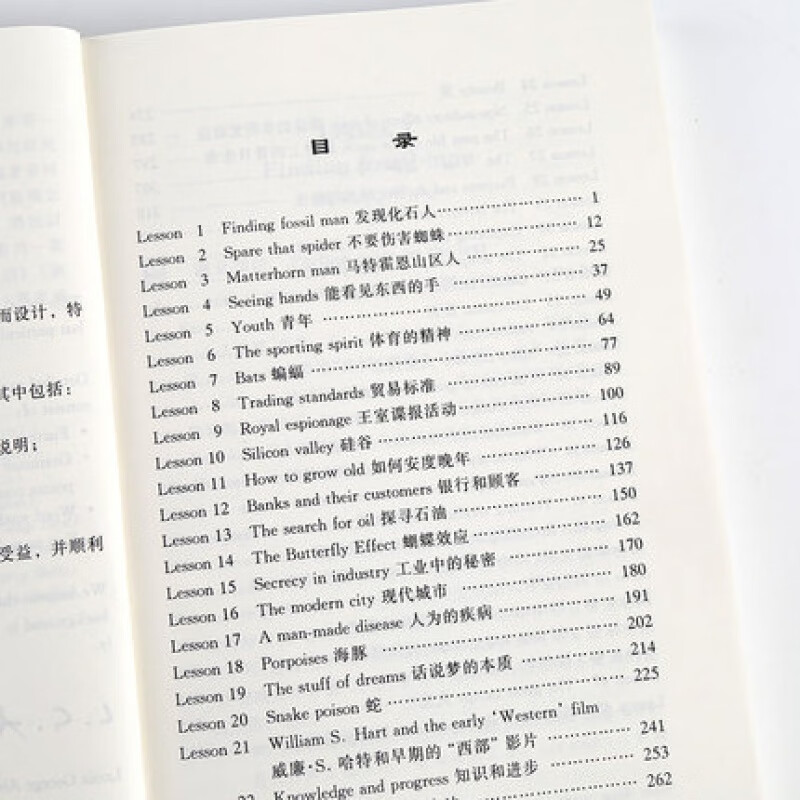 而设计，特
其中包括：
说明；
受益，并顺利
目 录
Lesson 1 Finding fossil man 发现化石人 …… 1
Lesson 2 Spare that spider 不要伤害蜘蛛 …… 12
Lesson 3 Matterhorn man 马特霍恩山区人 …… 25
Lesson 4 Seeing hands 能看见东西的手 …… 37
Lesson 5 Youth 青年 …… 49
Lesson 6 The sporting spirit 体育的精神 …… 64
Lesson 7 Bats 蝙蝠 …… 77
Lesson 8 Trading standards 贸易标准 …… 89
Lesson 9 Royal espionage 王室谍报活动 …… 100
Lesson 10 Silicon valley 硅谷 …… 116
Lesson 11 How to grow old 如何安度晚年 …… 126
Lesson 12 Banks and their customers 银行和顾客 …… 137
Lesson 13 The search for oil 探寻石油 …… 150
Lesson 14 The Butterfly Effect 蝴蝶效应 …… 162
Lesson 15 Secrecy in industry 工业中的秘密 …… 170
Lesson 16 The modern city 现代城市 …… 180
Lesson 17 A man-made disease 人为的疾病 …… 191
Lesson 18 Porpoises 海豚 …… 202
Lesson 19 The stuff of dreams 话说梦的本质 …… 214
Lesson 20 Snake poison 蛇 …… 225
Lesson 21 William S. Hart and the early ‘Western’ film
威廉·S. 哈特和早期的“西部”影片 …… 241
22 Knowledge and progress 知识和进步 …… 253
262